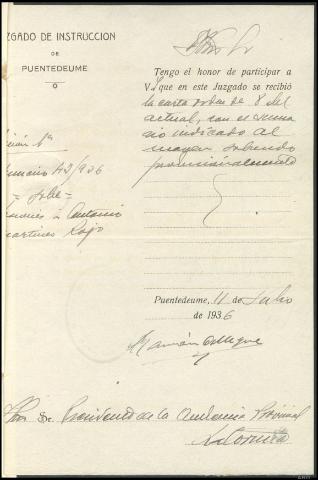 ZGADO DE INSTRUCCION
DE
PUENTEDEUME
Tengo el honor de participar a
V. I. que en este Juzgado se recibió
la carta orden de 8 del
actual, con el suma
rio indicado al
margen sobreseido
provisionalmente
42/936
- sobre -
a Antonio
Martinez Rojo
Puentedeume, 11 de Julio
de 1936
Sr. Presidente de la Audiencia Provincial
La Coruña